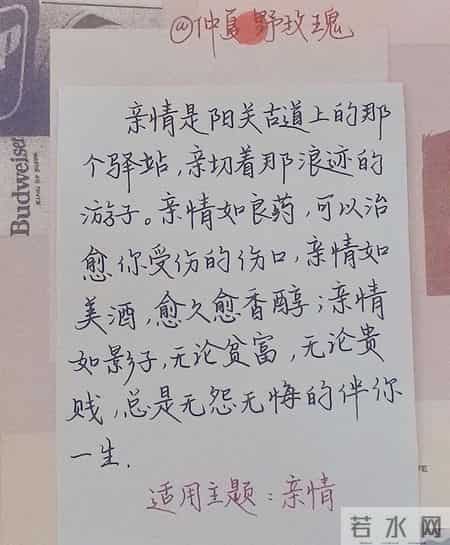 @仲夏野玫瑰
Budweiser
KING OF BEERS
亲情是阳关古道上的那
个驿站,亲切着那浪迹的
游子。亲情如良药,可以治
愈你受伤的伤口,亲情如
美酒,愈久愈香醇;亲情
如影子,无论贫富,无论贵
贱,总是无怨无悔的伴你
一生.
适用主题:亲情
若水网